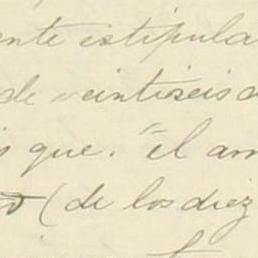 ente estipula
de veintiseis d
s que. "el am
(de los diez